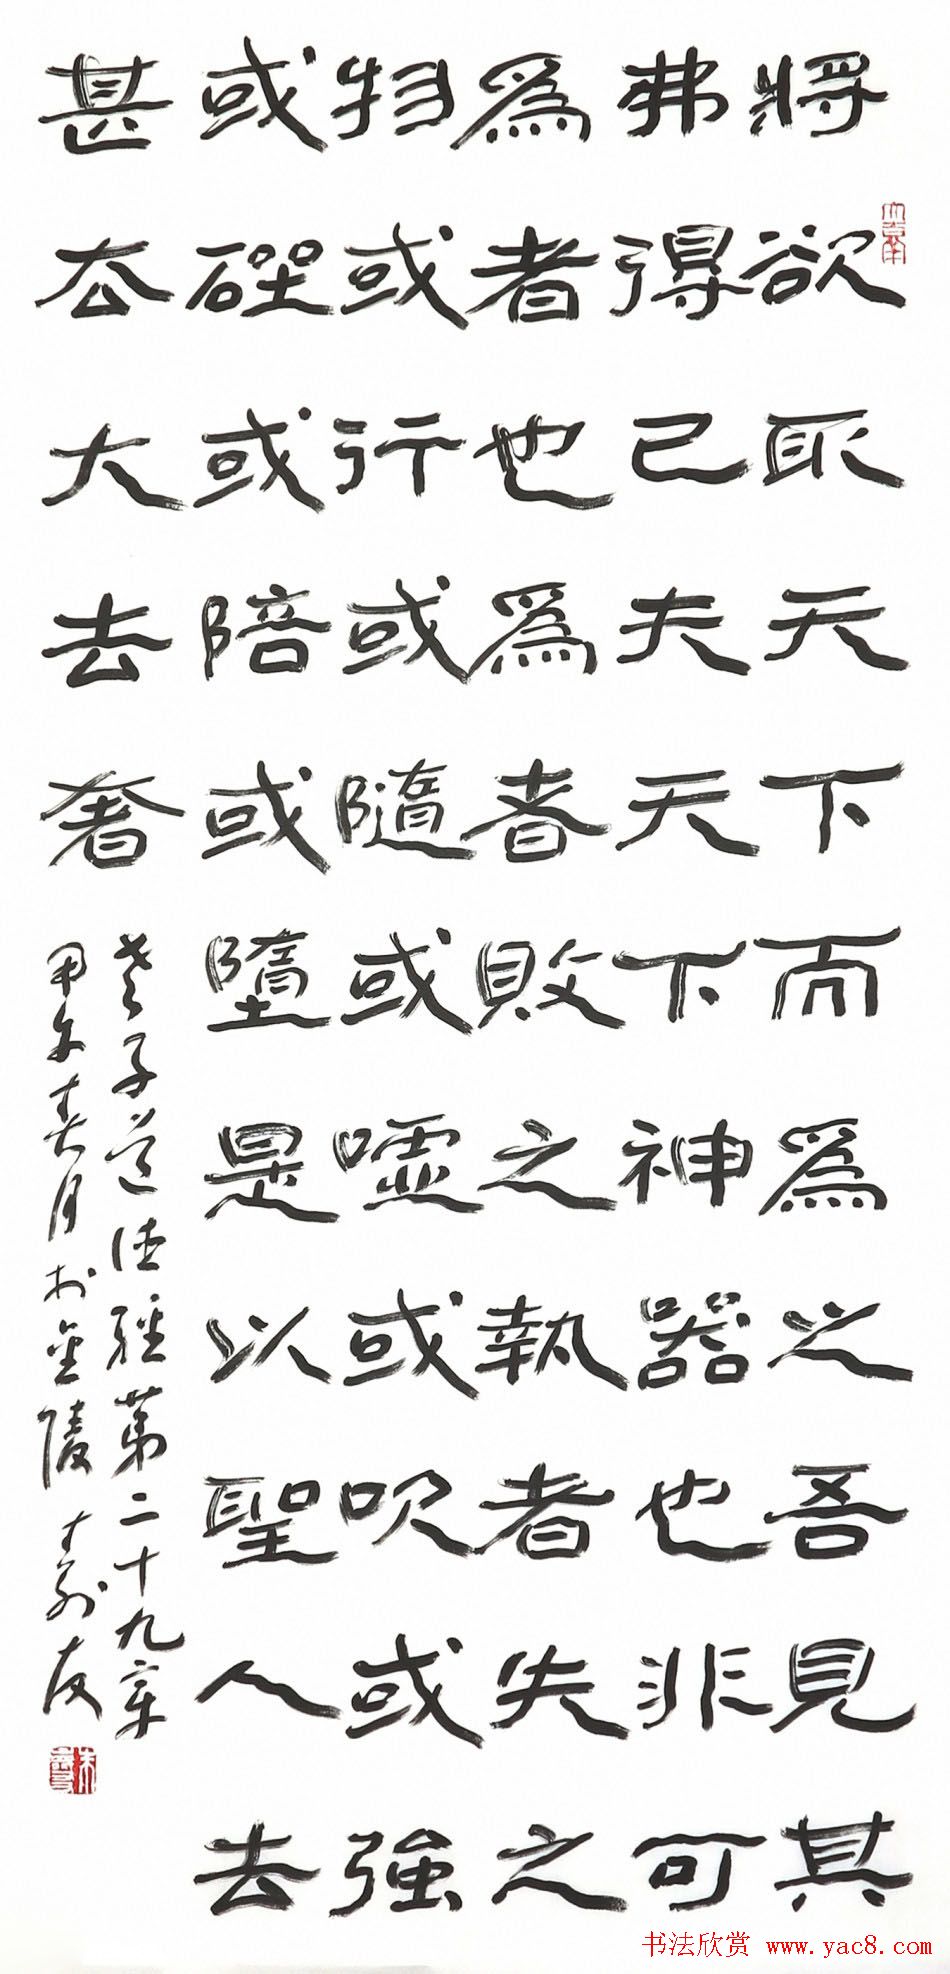 將欲取天下而爲之吾見其
弗得已夫天下神器也非可
爲者也爲者敗之執者失之
物或行或隨或噓或吹或強
或䂳或陪或墮是以聖人去
甚去大去奢
老子道德經第二十九章
甲午春月於金陵壽友
书法欣赏 www.yac8.com